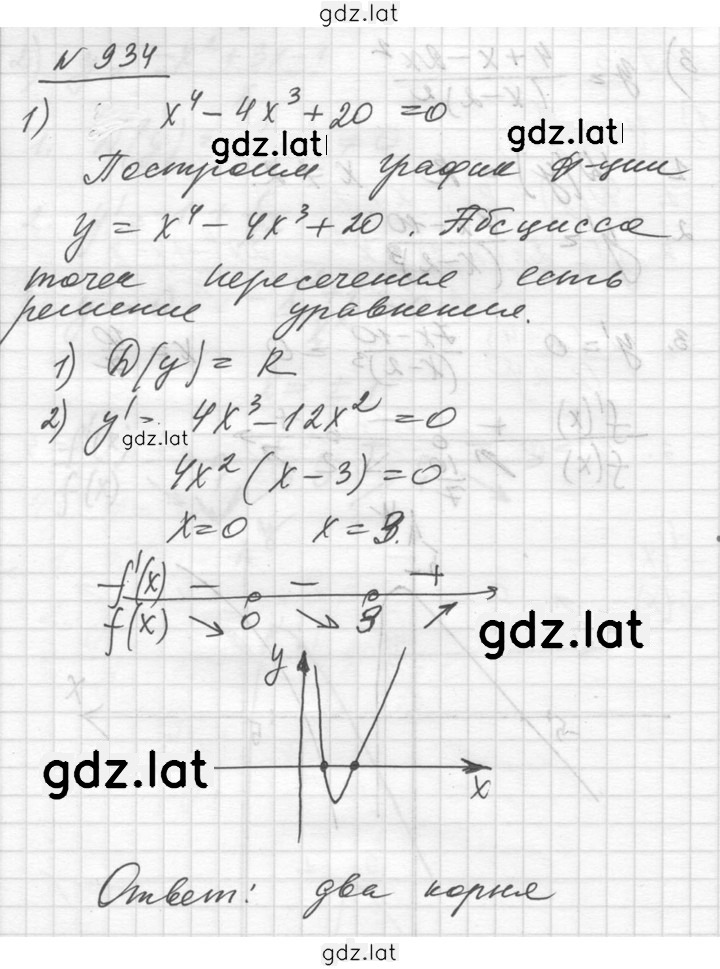 gdz.lat
N 934
1) x⁴ - 4x³ + 20 = 0
gdz.lat gdz.lat
Построим график ф-ции
y = x⁴ - 4x³ + 20. Абсцисса
точек пересечения есть
решение уравнения.
1) D(y) = R
2) y' = 4x³ - 12x² = 0
gdz.lat
4x² (x - 3) = 0
x = 0 x = 3.
f'(x) - - +
f(x) ↘ 0 ↘ 3 ↗
gdz.lat
y
gdz.lat
x
Ответ: два корня
gdz.lat